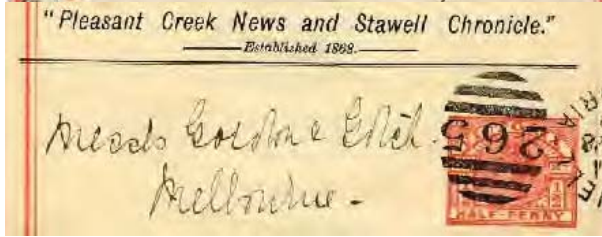 "Pleasant Creek News and Stawell Chronicle."
Established 1868.
Messrs Gordon & Gotch.
Melbourne -
265
HALF-PENNY